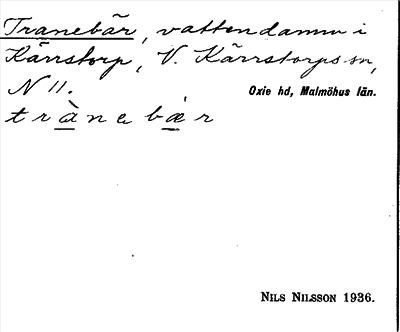 Tranebär, vattendamm i
Kärrstorp, V. Kärrstorps sn,
N 11.
Oxie hd, Malmöhus län.
trànebær
NILS NILSSON 1936.